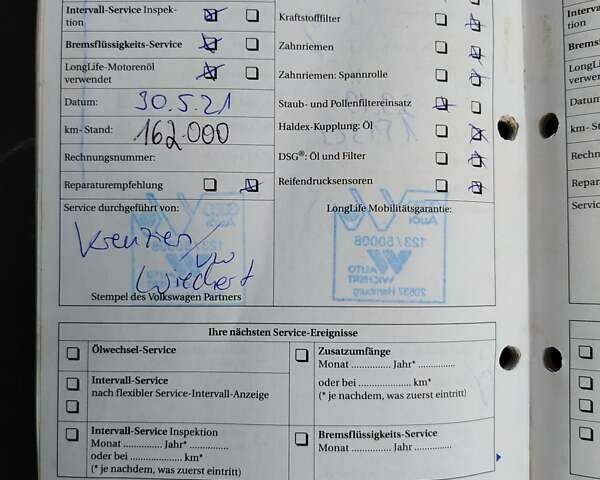 Intervall-Service Inspek-
tion
Bremsflüssigkeits-Service
LongLife-Motorenöl
verwendet
Datum: 30.5.21
km- Stand: 162.000
Rechnungsnummer:
Reparaturempfehlung
Service durchgeführt von:
VW
Wiechert
Stempel des Volkswagen Partners
Kraftstofffilter
Zahnriemen
Zahnriemen: Spannrolle
Staub- und Pollenfiltereinsatz
Haldex-Kupplung: Öl
DSG®: Öl und Filter
Reifendrucksensoren
LongLife Mobilitätsgarantie:
Audi
123/50008
AUTO
WICHERT
20537 Hamburg
Ihre nächsten Service-Ereignisse
Ölwechsel-Service
Intervall-Service
nach flexibler Service-Intervall-Anzeige
Intervall-Service Inspektion
Monat ............. Jahr* .............
oder bei .................... km*
(* je nachdem, was zuerst eintritt)
Zusatzumfänge
Monat ............. Jahr* .............
oder bei .................... km*
(* je nachdem, was zuerst eintritt)
Bremsflüssigkeits-Service
Monat ............. Jahr .............
Intervall-
tion
Bremsflü
LongLi
verwen
Datum
km- Stan
Rechnu
Repara
Servic